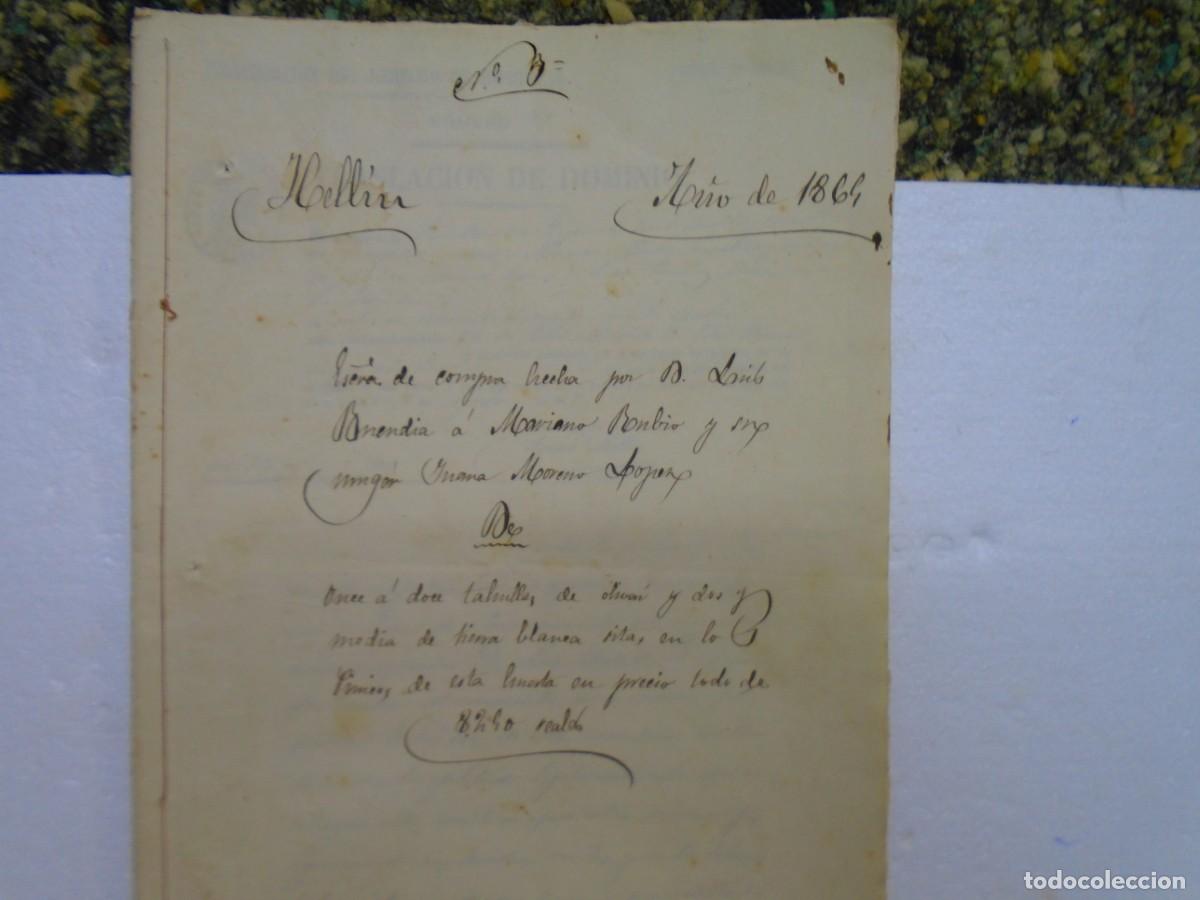 Nº 3=
Hellín Año de 1864
Escra de compra hecha por D. Luis
Buendia á Mariano Rubio y su
muger Juana Moreno Lopez
De
Once á doce tahullas de olivar y dos y
media de tierra blanca sitas en lo
de esta huerta en precio todo de
reales
todocoleccion